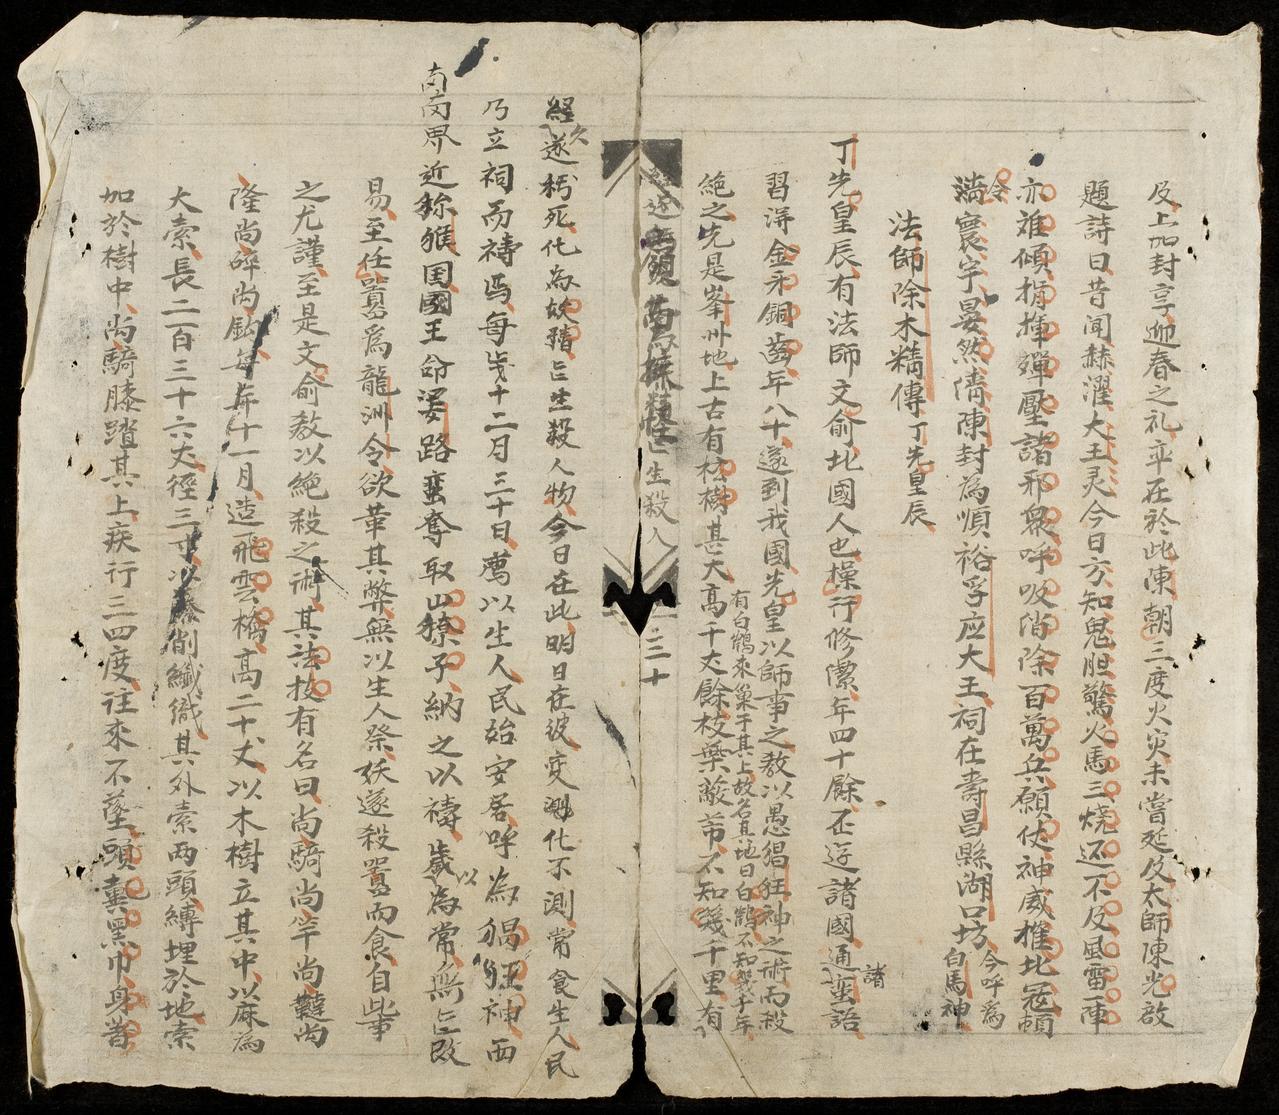 及上加封享迎春之礼卒在於此陳朝三度火灾未嘗延及太師陳光啟
題詩曰昔聞赫濯大王灵今日方知鬼胆驚火馬三燒还不及風雷一陣
亦难傾指揮殫壓諸邪衆呼吸消除百萬兵願仗神威摧北冦頓
令滿寰宇晏然清陳封為順裕孚应大王祠在壽昌縣湖口坊今呼為白馬神
法師除木精傳丁先皇辰
丁先皇辰有法師文俞北國人也操行修潔年四十餘歪逰諸國通諸蛮語
習洴金牙銅齒年八十遂到我國先皇以師事之教以愚猖狂神之術而殺
絶之先是峯州地上古有枟樹甚大高千丈餘枝葉蔽芾不知幾千里有有白鶴來巢于其上故名其地曰白鶴不知幾千年
三十
經久遂朽死化為妖猎亡生殺人物今日在此明日在彼变化不測常食生人民
乃立祠而禱焉每歲十二月三十日薦以生人民始安居呼為猖狂神西
南界近狝猴国國王命婆路蛮奪取山獠子納之以禱歲以為常無亡改
易至任嚣為龍洲令欲革其弊無以生人祭妖遂殺嚣而食自此事
之尤謹至是文俞教以絶殺之術其法技有名曰尚騎尚竿尚韃尚
隆尚碎尚鈜每年十一月造飛雲橋高二十丈以木樹立其中以麻為
大索長二百三十六丈徑三寸以藤削纖織其外索两頭縛埋於地索
加於樹中尚騎膝踏其上疾行三四度往來不墜頭裏黑巾身着